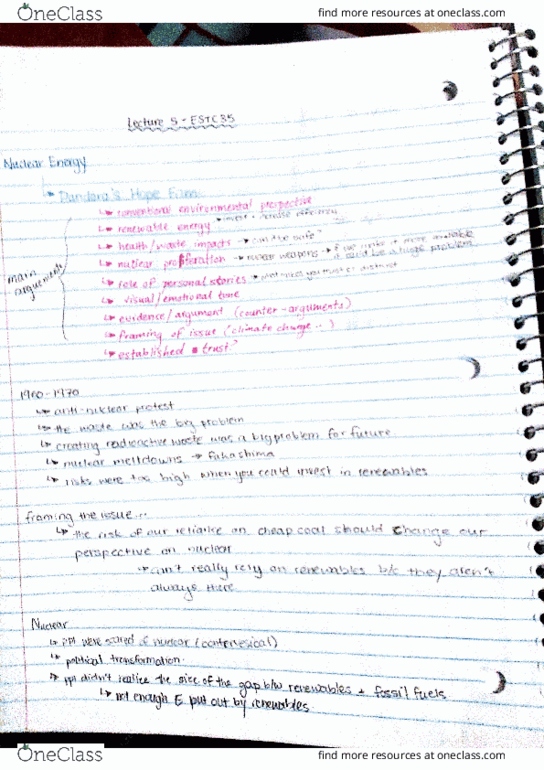 OneClass
find more resources at oneclass.com
Lecture 5 - ESTC35
Nuclear Energy
↳ Pandora's Hope Film
main arguements
↳ conventional environmental perspective
↳ renewable energy → invest + increase efficiency
↳ health/waste impacts → can it be safe?
↳ nuclear proliferation → nuclear weapons → if we make it more available it could be a huge problem
↳ role of personal stories →
↳ visual/emotional tone
↳ evidence/argument (counter-arguments)
↳ framing of issue (climate change ..)
↳ established trust?
1960-1970
↳ anti-nuclear protest
↳ the waste was the big problem
↳ creating radioactive waste was a big problem for future
↳ nuclear meltdowns → fukashima
↳ risks were too high when you could invest in renewables
framing the issue...
↳ the risk of our reliance on cheap coal should change our
perspective on nuclear
→ can't really rely on renewables b/c they aren't
always there
Nuclear
↳ ppl were scared of nuclear (conterversical)
↳ political transformation.
↳ ppl didn't realize the size of the gap b/w renewables + fossil fuels
↳ not enough E put out by renewables.
OneClass
find more resources at oneclass.com